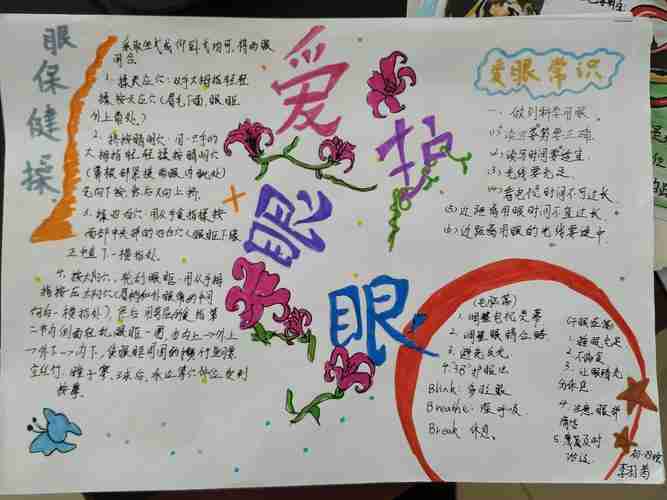 眼保健操
采取坐式或仰卧式均可,将两眼
闭合
1. 揉天应穴:以手大拇指轻轻
揉按天应穴(眉毛下面,眼眶
外上角处。)
2. 挤按睛明穴:用一只手的
大拇指轻轻揉按睛明穴
(鼻根部紧挨两眼内眦处)
先向下按,然后又向上挤。
3. 揉四白穴:用以手食指揉按
面部中央部的四白穴(眼眶下缘
正中直下一横指处。
4. 按太阳穴、轮刮眼眶:用以手拇
指按在太阳穴(眉梢和外眼角的中间
向后一横指处),然后用
二节内侧面轻刮眼眶一圈,由内上→外上
→外下→内下,使眼眶周围的
按摩。
爱护
眼眼
爱眼常识
一、做到科学用眼。
(2) 读写时间要适宜
(3) 光线要充足
(4) 看电视时间不可过长
(5) 近距离用眼时间不宜过长
(6) 近距离用眼的光线要适中
(电脑篇)
1. 调整电脑屏幕
2. 调整眼睛
3. 避免反光
4. 3B护眼法
Blink: 多眨眼
Breathe: 深呼吸
Break 休息。
1. 睡眠充足
2. 不偏食
3. 让眼睛充
分休息
4. 注意眼部
5.